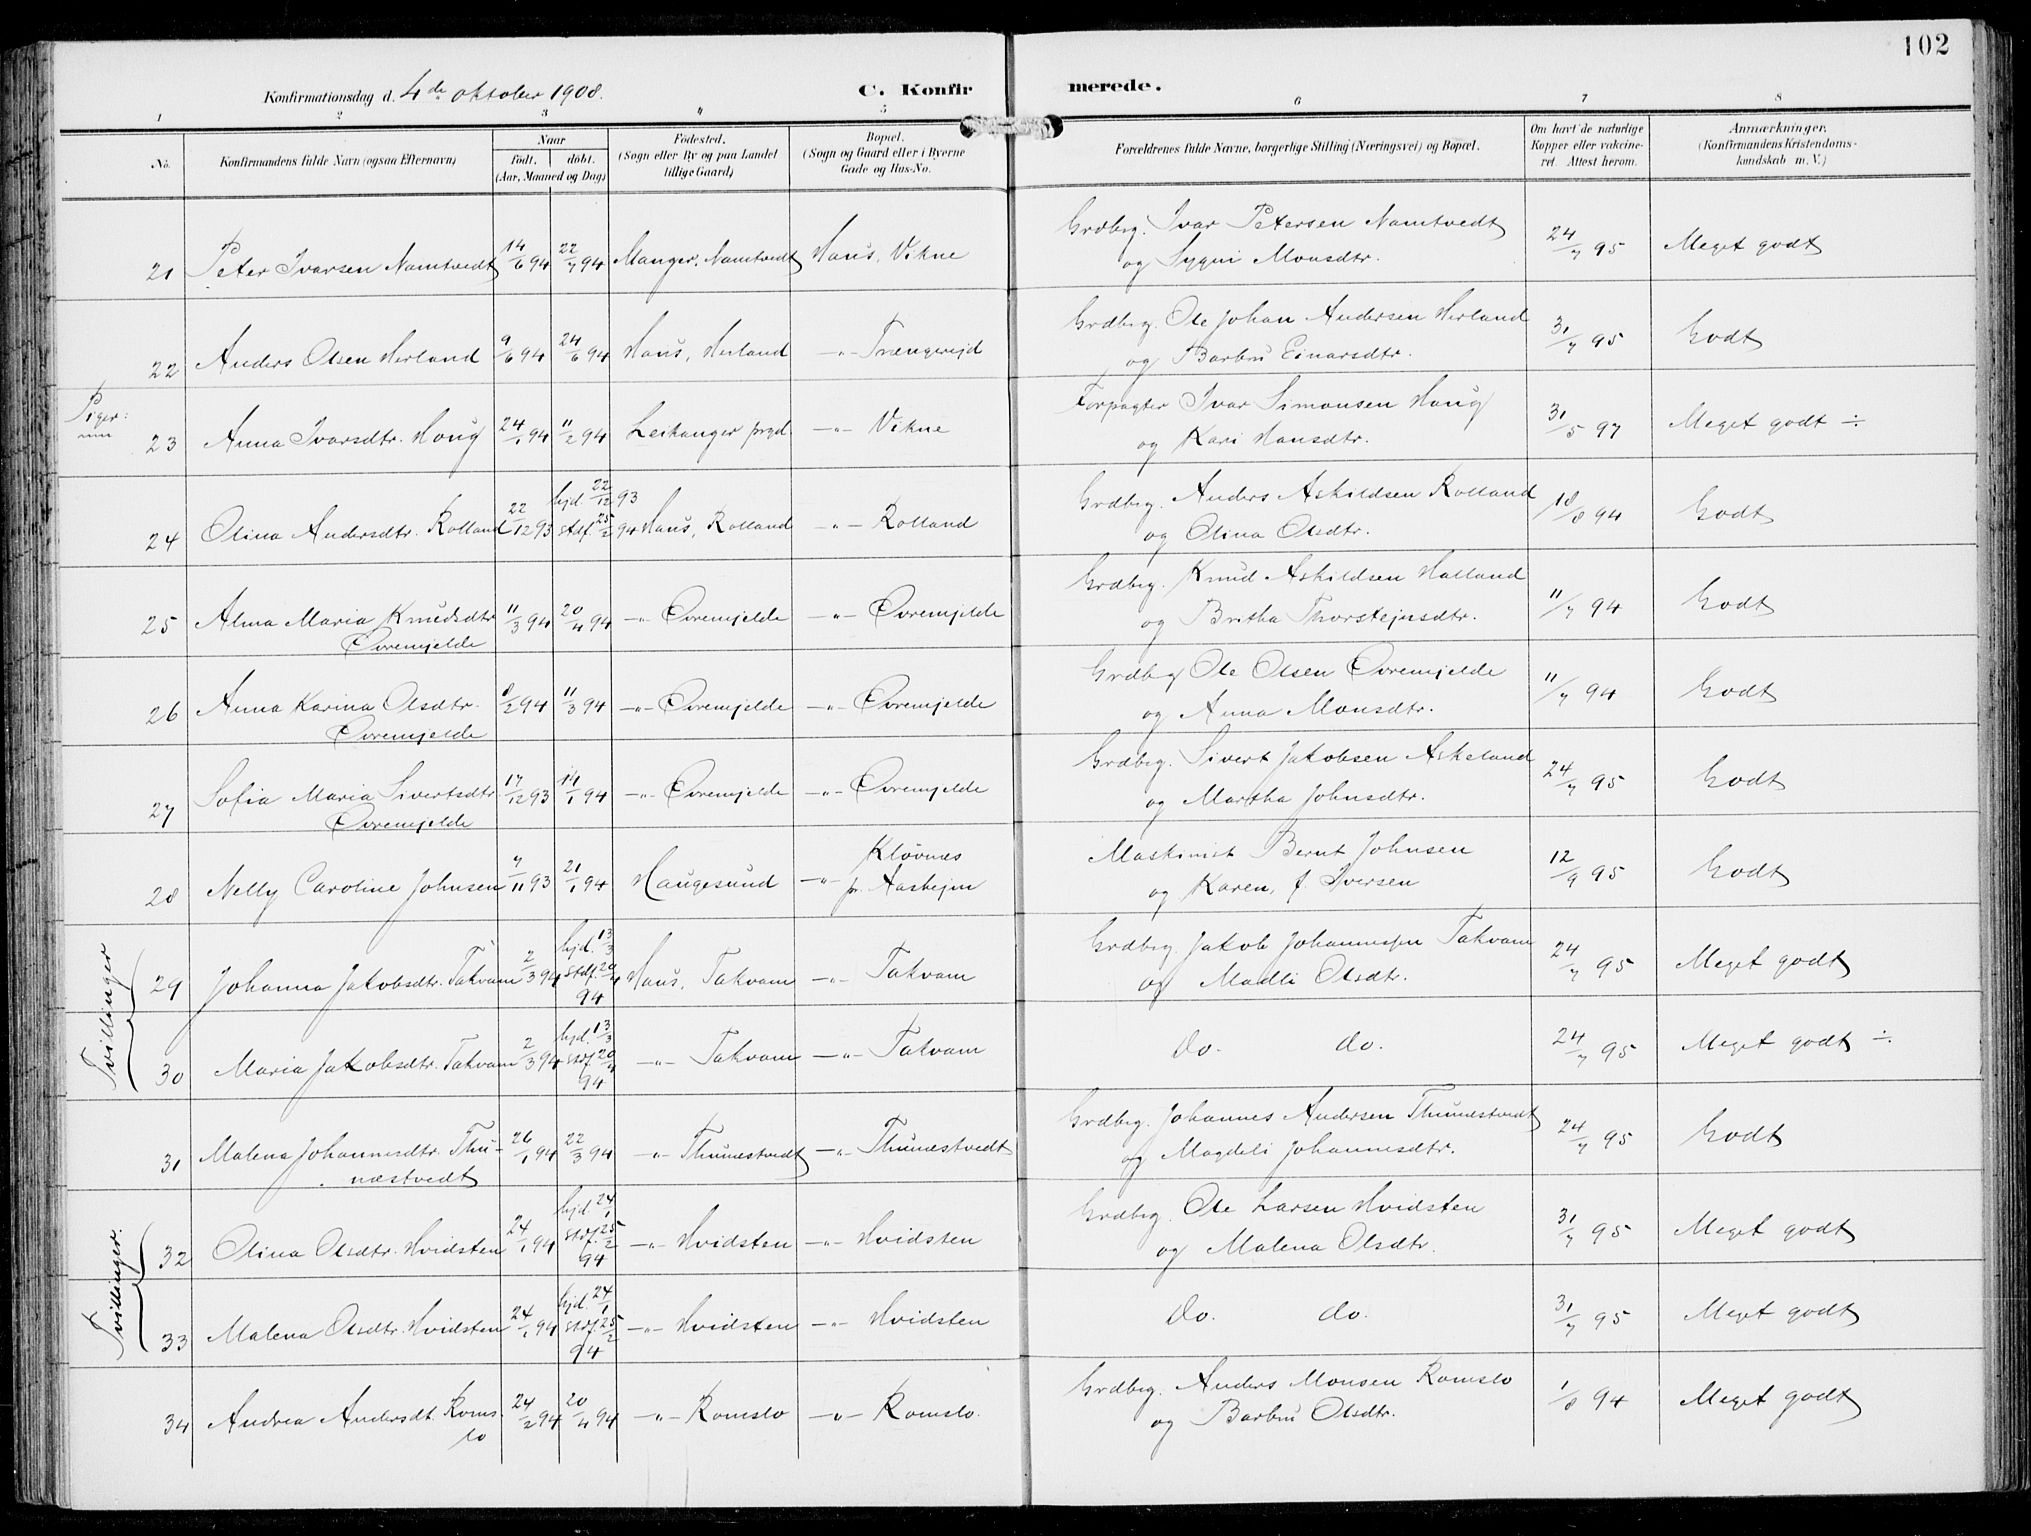 102
Konfirmationsdag d. 4de oktober 1908.
C. Konfirmerede.
1 2 3 4 5 6 7 8
No.
Konfirmandens fulde Navn (ogsaa Efternavn)
Naar
født. døbt.
(Aar, Maaned og Dag)
Fødested.
(Sogn eller By og paa Landet
tillige Gaard)
Bopæl.
(Sogn og Gaard eller i Byerne
Gade og Hus-No.
Forældrenes fulde Navne, borgerlige Stilling (Næringsvei) og Bopæl.
Om havt de naturlige
Kopper eller vakcine-
ret. Attest herom.
Anmærkninger.
(Konfirmandens Kristendoms-
kundskab m. V.)
21 Peter Ivarsen Namtvedt 14/6 94 22/7 94 Manger, Namtvedt Haus, Vikne Grdbrg. Ivar Petersen Namtvedt 24/7 95 Meget godt
og Sygni Monsdtr.
22 Anders Olsen Herland 9/6 94 24/6 94 Haus, Herland -"- Trængereid Grdbrg. Ole Johan Andersen Herland 31/7 95 Godt
og Barbru Einarsdtr.
Piger:
23 Anna Ivarsdtr. Haug 24/1 94 11/2 94 Leikanger prgd. -"- Vikne Forpagter Ivar Simonsen Haug 31/5 97 Meget godt ÷
og Kari Hansdtr.
24 Olina Andersdtr. Rolland 22/12 93 hjd. 22/12 93 stdf. 25/2 94 Haus, Rolland -"- Rolland Grdbrg. Anders Askildsen Rolland 18/8 94 Godt
og Olina Olsdtr.
25 Alma Maria Knudsdtr. 11/3 94 20/4 94 -"- Øvremjelde -"- Øvremjelde Grdbrg. Knud Askildsen Halland 11/7 94 Godt
Øvremjelde
og Britha Thorstejnsdtr.
26 Anna Karina Olsdtr. 8/2 94 11/3 94 -"- Øvremjelde -"- Øvremjelde Grdbrg Ole Olsen Øvremjelde 11/7 94 Godt
Øvremjelde
og Anna Monsdtr.
27 Sofia Maria Sivertsdtr. 17/12 93 14/1 94 -"- Øvremjelde -"- Øvremjelde Grdbrg. Sivert Jakobsen Askeland 24/7 95 Godt
Øvremjelde
og Martha Johnsdtr.
28 Nelly Caroline Johnsen 7/11 93 21/1 94 Haugesund -"- Kløvnes
pr. Aashejm
Maskinist Bernt Johnsen 12/9 95 Godt
og Karen, f. Iversen
Tvillinger
29 Johanna Jakobsdtr. Takvam 2/3 94 hjd. 13/3 stdf. 20/4 94 Haus, Takvam -"- Takvam Grdbrg. Jakob Johannessen Takvam 24/7 95 Meget godt
og Madli Olsdtr.
30 Maria Jakobsdtr. Takvam 2/3 94 hjd. 13/3 stdf. 20/4 94 -"- Takvam -"- Takvam do. do. 24/7 95 Meget godt ÷
31 Malena Johannesdtr. Thu- 26/1 94 22/3 94 -"- Thunestvedt -"- Thunestvedt Grdbrg. Johannes Andersen Thunestvedt 24/7 95 Godt
næstvedt
og Magdeli Johannesdtr.
Tvillinger.
32 Olina Olsdtr. Hvidsten 24/1 94 hjd. 24/1 stdf. 25/2 94 -"- Hvidsten -"- Hvidsten Grdbrg. Ole Larsen Hvidsten 31/7 95 Meget godt
og Malena Olsdtr.
33 Malena Olsdtr. Hvidsten 24/1 94 hjd. 24/1 stdf. 25/2 94 -"- Hvidsten -"- Hvidsten do. do. 31/7 95 Meget godt
34 Andrea Andersdt. Roms- 24/2 94 20/4 94 -"- Romslo -"- Romslo. Grdbrg. Anders Monsen Romslo 1/8 94 Meget godt
lo
og Barbru Olsdtr.